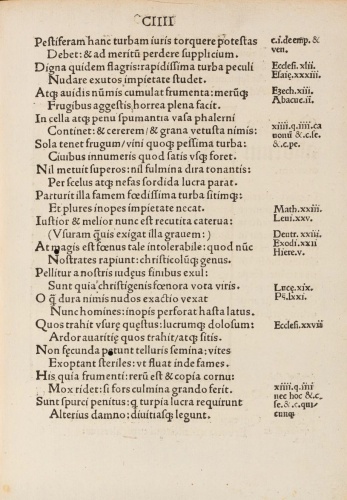 CIIII
Pestiferam hanc turbam iuris torquere potestas
Debet: & ad meritū perdere supplicium.
Digna quidem flagris: rapidissima turba peculi
Nudare exutos impietate studet.
Atq; auidis nūmis cumulat frumenta: merūq;
Frugibus aggestis, horrea plena facit.
In cella atq; penu spumantia vasa phalerni
Continet: & cererem / & grana vetusta nimis:
Sola tenet frugum / vini quoq; pessima turba:
Ciuibus innumeris quod satis vsq; foret.
Nil metuit superos: nil fulmina dira tonantis:
Per scelus atq; nefas sordida lucra parat.
Parturit illa famem fœdissima turba sitimq;:
Et plures inopes impietate necat.
Iustior & melior nunc est recutita caterua:
(Vsuram quis exigat illa grauem:)
At magis est fœnus tale intolerabile: quod nūc
Nostrates rapiunt: christicolūq; genus.
Pellitur a nostris iudęus finibus exul:
Sunt quia christigenis fœnora vota viris.
O q̄ dura nimis nudos exactio vexat
Nunc homines: inopis perforat hasta latus.
Quos trahit vsurę quęstus: lucrumq; dolosum:
Ardor auaritię quos trahit / atq; sitis.
Non fęcunda petunt telluris semina; vites
Exoptant steriles: vt fluat inde fames.
His quia frumenti: rerū est & copia cornu:
Mox ridet: si fors culmina grando ferit.
Sunt spurci penitus: q turpia lucra requirunt
Alterius damno: diuitiasq; legunt.
c.i. de emp. &
ven.
Ecclesi. xlii.
Esaię. xxxiii.
Ezech. xiii.
Abacuc. ii.
xiiii. q. iiii. ca
nonū & .c. se
& .c. pe.
Math. xxiii.
Leui. xxv.
Deutr. xxiii.
Exodi. xxii
Hiere. v.
Lucę. xix.
Ps. lxxi.
Ecclesi. xxvii
xiiii. q. iiii
nec hoc & .c.
se. & .c. qui
cunq;